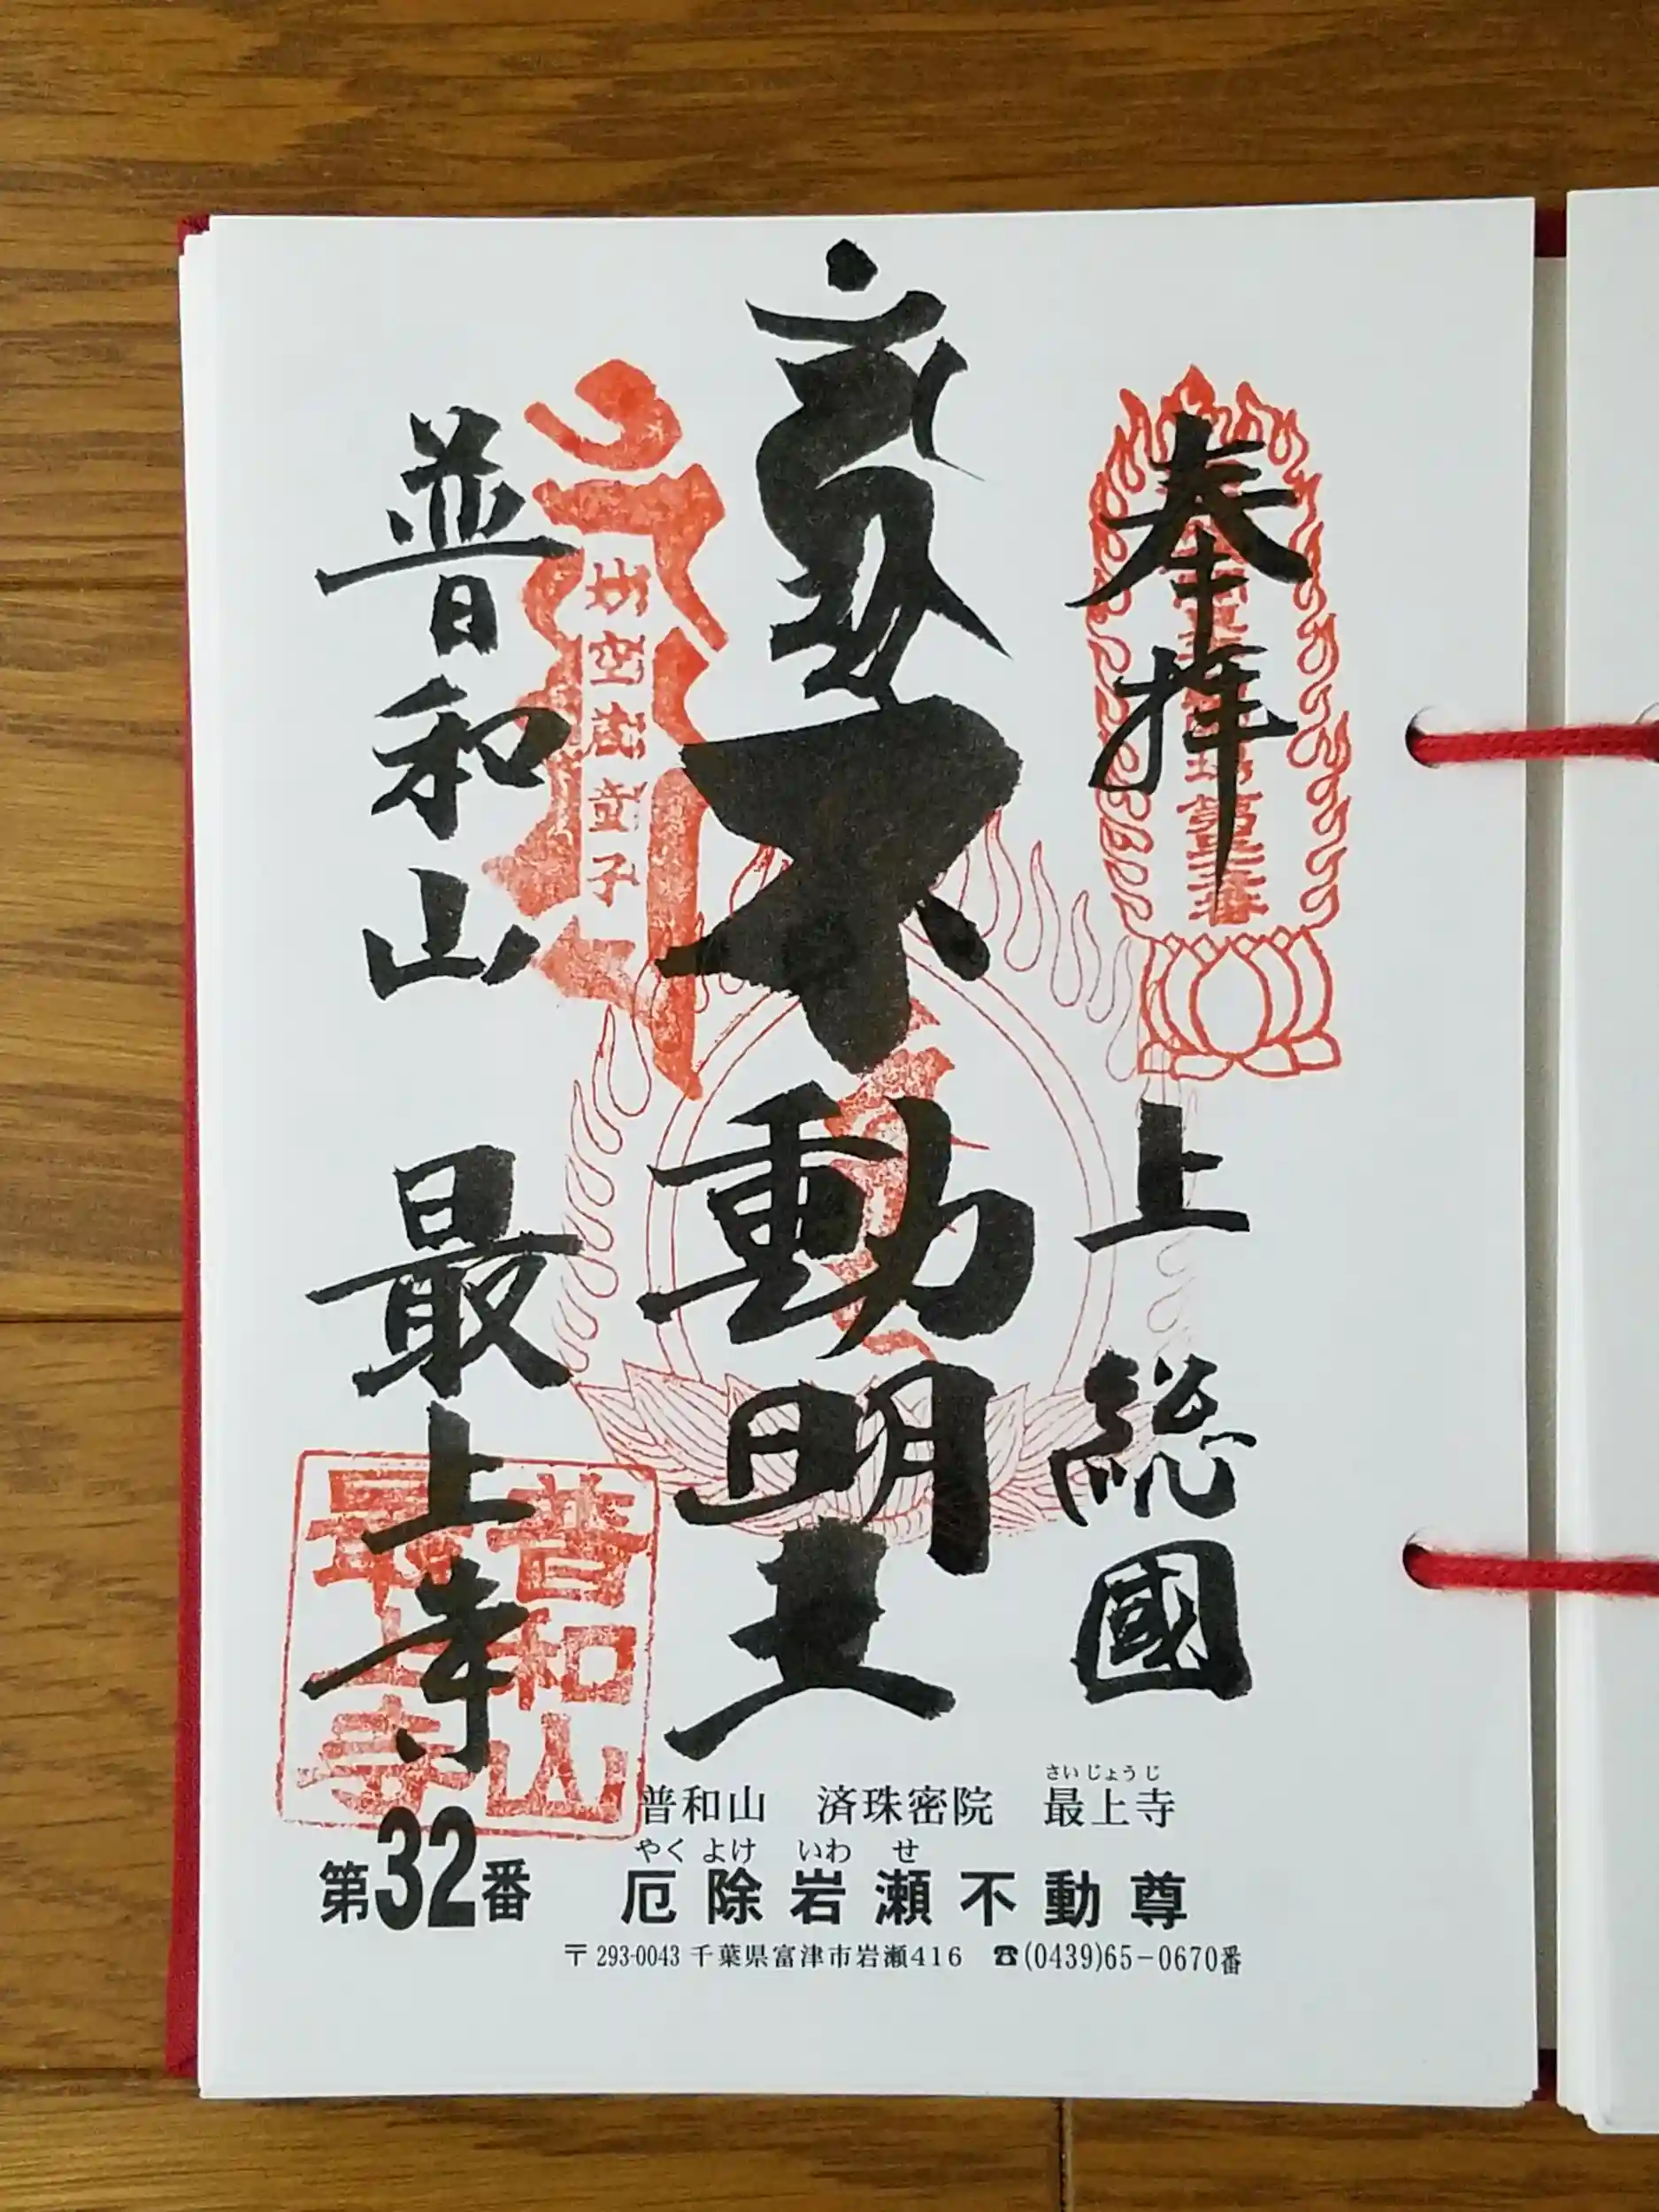 奉拝
上総國
不動明王
普和山 最上寺
普和山
最上寺
さいじょうじ
普和山 済珠密院 最上寺
やくよけ いわせ
厄除岩瀬不動尊
第32番
〒293-0043 千葉県富津市岩瀬416 ☎(0439)65-0670番